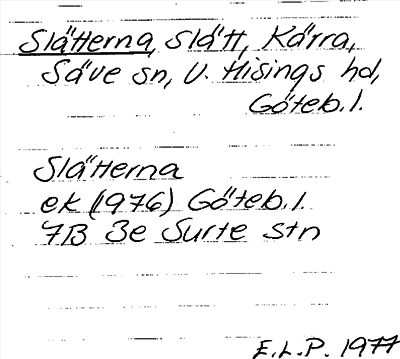 Slätterna, slätt, Kärra,
Säve sn, V. Hisings hd,
Göteb. l.
Slätterna
ek (1976) Göteb. l.
7B 3e Surte stn
E.L.P. 1977